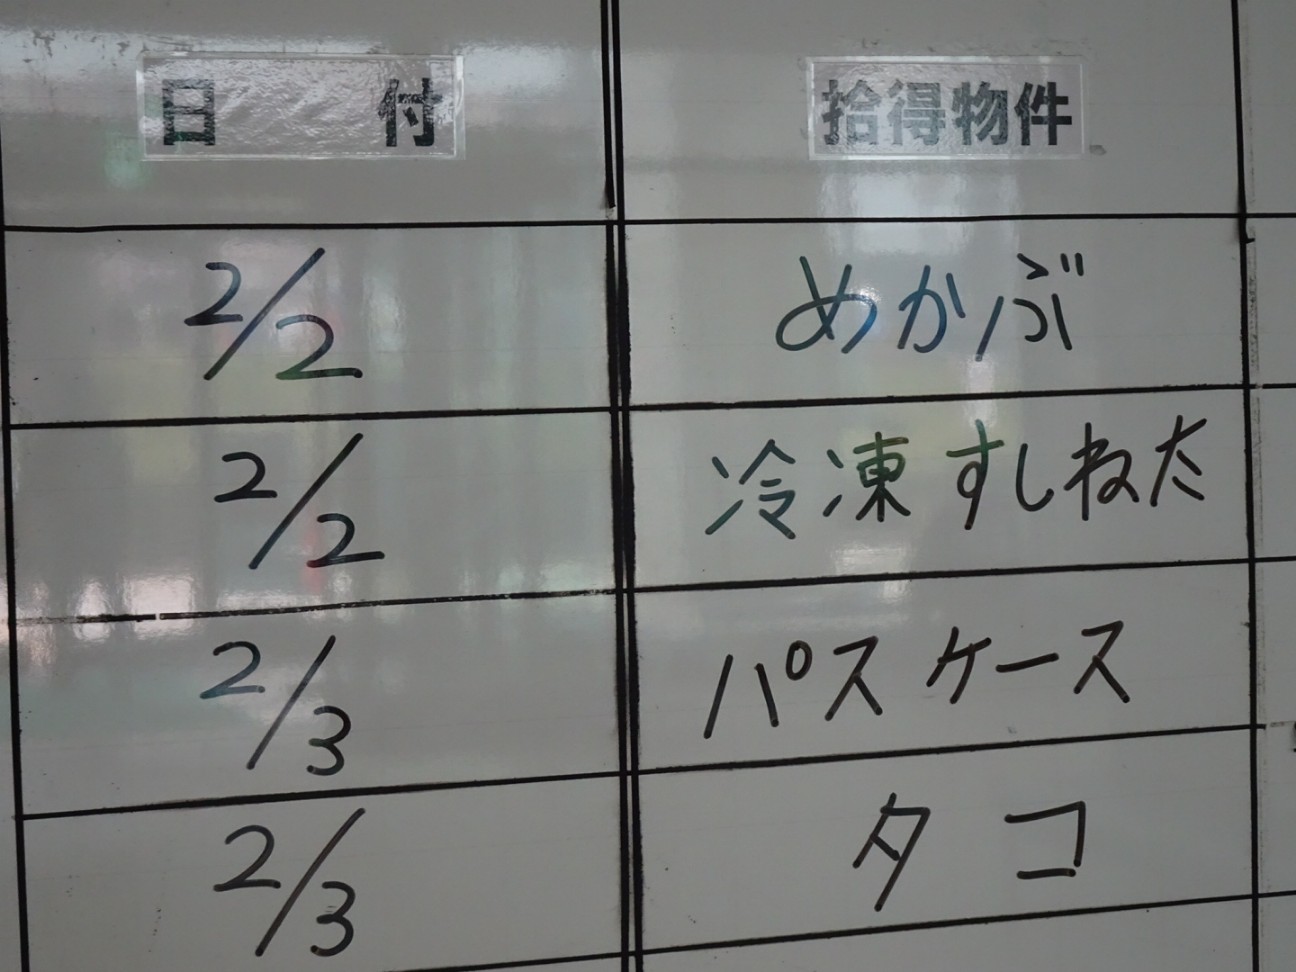 日付 拾得物件
2/2 めかぶ
2/2 冷凍すしねた
2/3 パスケース
2/3 タコ